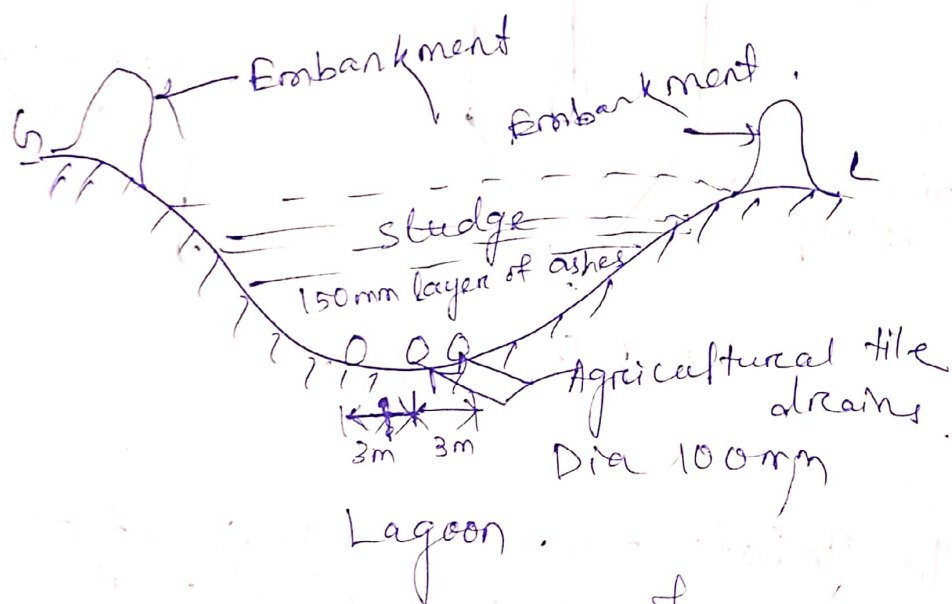 Embankment
Embankment.
G
L
sludge
150mm layer of ashes
Agricultural tile
drains.
3m 3m
Dia 100mm
Lagoon.
of